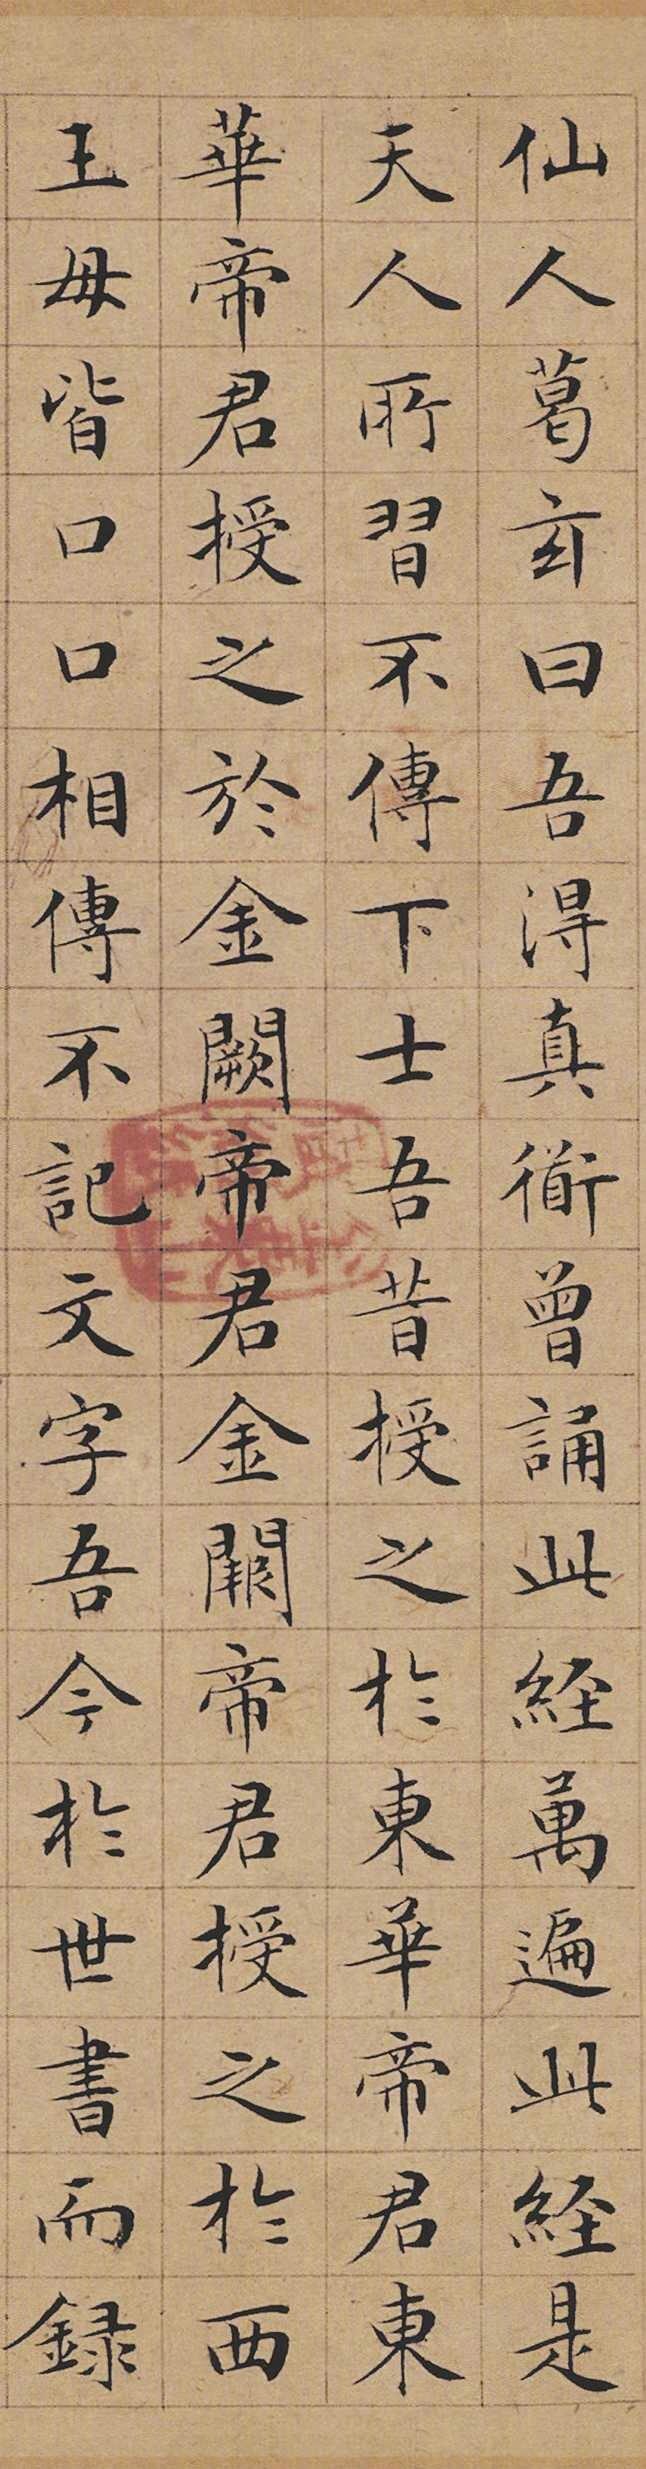 仙人葛玄曰吾得真道曾誦此經萬遍此經是
天人所習不傳下士吾昔授之於東華帝君東
華帝君授之於金闕帝君金闕帝君授之於西
王母皆口口相傳不記文字吾今於世書而録